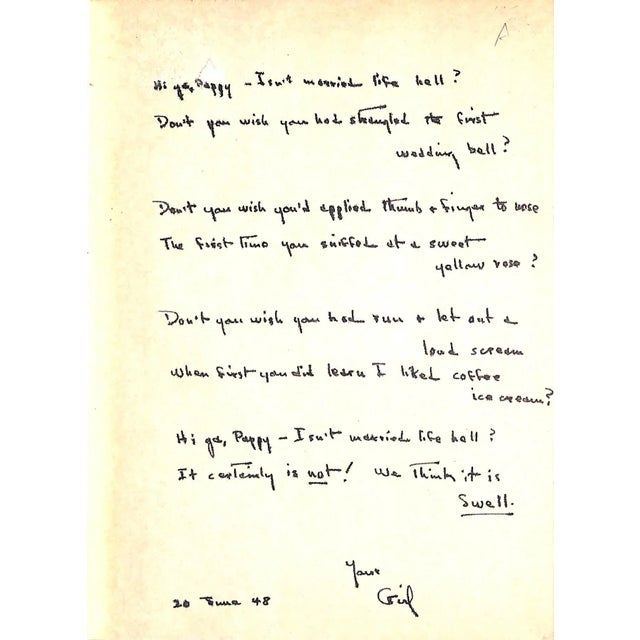 A
Hi ya, Pappy – Isn't married life hell?
Don't you wish you had strangled the first
wedding bell?
Don't you wish you'd applied thumb & finger to nose
The first time you sniffed at a sweet
yellow rose?
Don't you wish you had run & let out a
loud scream
When first you did learn I liked coffee
ice cream?
Hi ya, Pappy – Isn't married life hell?
It certainly is not! We think it is
Swell.
Your
Girl
20 June 48